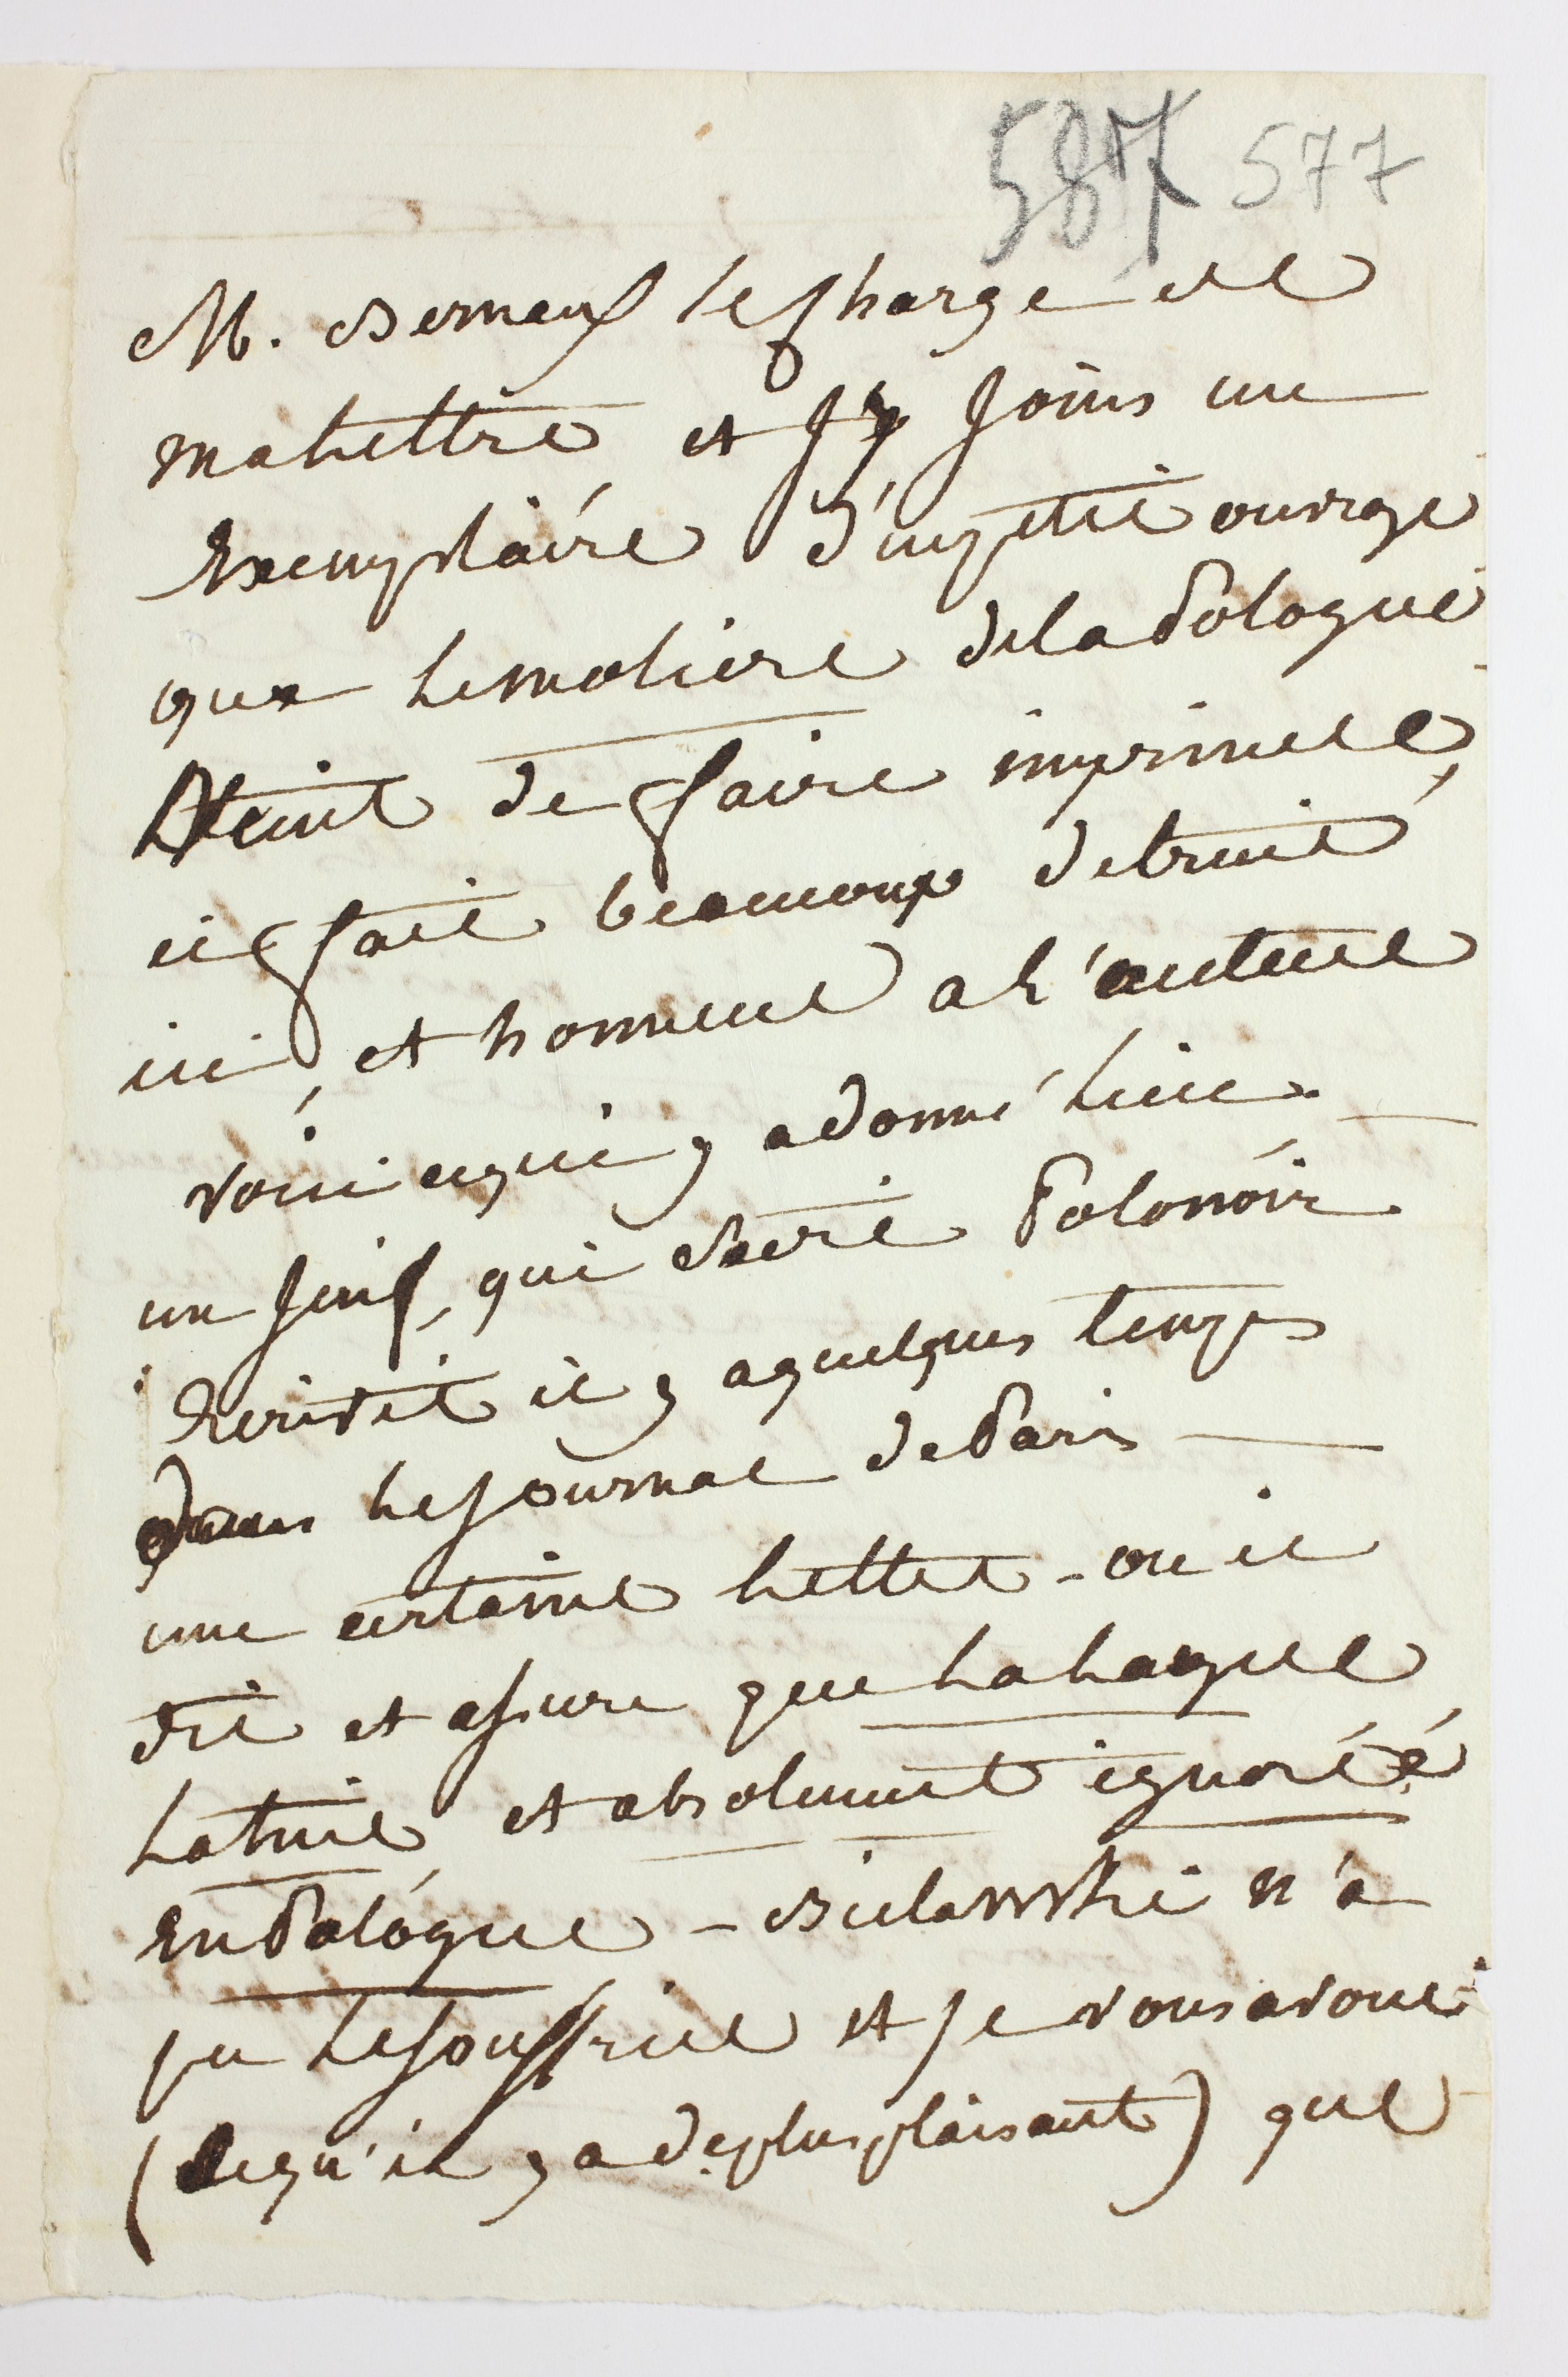 587 577
M. Bernaux se charge de
ma lettre et j'y joins un
Exemplaire d'un petit ouvrage
que le moliere de la Pologne
vient de faire imprimer,
il fait beaucoup de bruit
ici, et honneur a l'auteur
voici ce qui y a donné lieu.
un Juif, qui se dit Polonois
Ecrivit il y a quelques temps
dans le Journal de Paris
une certaine lettre - ou il
dit et assure que la langue
latine est absolument ignorée
en Pologne - Bielawski n'a
pu le souffrir et je vous avoue
(ce qu'il y a de plus plaisant) que